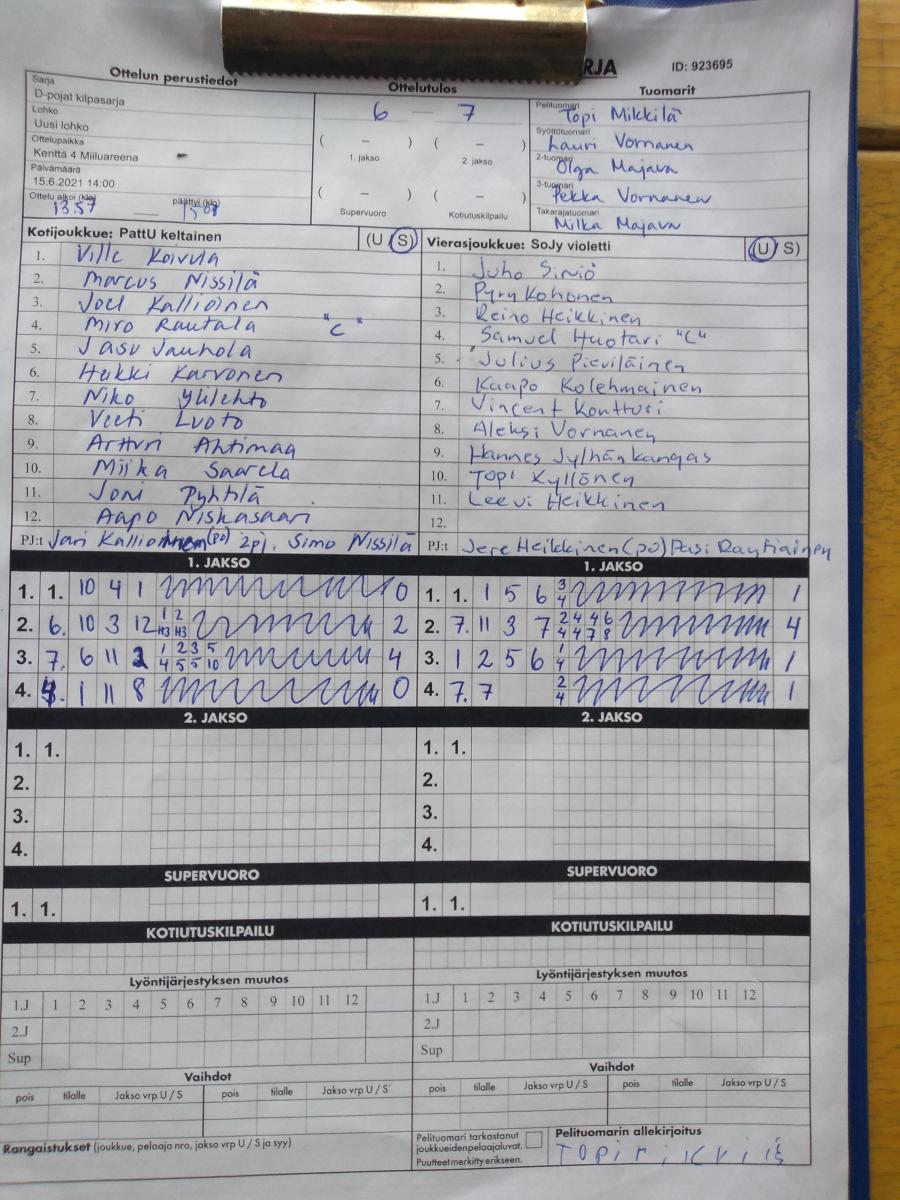 RJA
ID: 923695
Ottelun perustiedot
Sarja
D-pojat kilpasarja
Lohko
Uusi lohko
Ottelupaikka
Kenttä 4 Miiluareena
Päivämäärä
15.6.2021 14:00
Ottelu alkoi (klo) päättyi (klo)
13.57 —
Ottelutulos
6 — 7
( – ) ( – )
1. jakso 2. jakso
( – ) ( – )
Supervuoro Kotiutuskilpailu
Tuomarit
Pelituomari
Topi Mikkilä
Syöttötuomari
Lauri Vornanen
2-tuomari
Olga Majava
3-tuomari
Pekka Vornanen
Takarajatuomari
Milka Majava
Kotijoukkue: PattU keltainen (U S)
1. Ville Koivula
2. Marcus Nissilä
3. Joel Kallioinen
4. Miro Rautala "C"
5. Jasu Jauhola
6. Heikki Karvonen
7. Niko Ylilehto
8. Veeti Luoto
9. Artturi Ahtimaa
10. Miika Saarela
11. Joni Pyhtilä
12. Aapo Niskasaari
PJ:t Jari (po) 2pj. Simo Nissilä
Vierasjoukkue: SoJy violetti (U S)
1. Juho Siniö
2. Pyry Kohonen
3. Reino Heikkinen
4. Samuel Huotari "C"
5. Julius Pieviläinen
6. Kaapo Kolehmainen
7. Vincent Konttusi
8. Aleksi Vornanen
9. Hannes Jylhänkangas
10. Topi Kyllönen
11. Leevi Heikkinen
12.
PJ:t Jere Heikkinen (po) Pasi Rautiainen
1. JAKSO
1. 1. 10 4 1 0
2. 6. 10 3 12 1 2 2
H3 H3
3. 7. 6 11 2 1 2 3 5 4
4 5 5 10
4. 1 11 8 0
1. JAKSO
1. 1. 1 5 6 3 1
4
2. 7. 11 3 7 2 4 4 6 4
4 4 7 8
3. 1 2 5 6 1 1
4
4. 7. 7 2 1
4
2. JAKSO
1. 1.
2.
3.
4.
2. JAKSO
1. 1.
2.
3.
4.
SUPERVUORO
1. 1.
SUPERVUORO
1. 1.
KOTIUTUSKILPAILU
KOTIUTUSKILPAILU
Lyöntijärjestyksen muutos
1.J 1 2 3 4 5 6 7 8 9 10 11 12
2.J
Sup
Lyöntijärjestyksen muutos
1.J 1 2 3 4 5 6 7 8 9 10 11 12
2.J
Sup
Vaihdot
pois tilalle Jakso vrp U / S pois tilalle Jakso vrp U / S
Vaihdot
pois tilalle Jakso vrp U / S pois tilalle Jakso vrp U / S
Rangaistukset (joukkue, pelaaja nro, jakso vrp U / S ja syy)
Pelituomari tarkastanut
joukkueiden pelaajaluvat.
Puutteet merkitty erikseen.
Pelituomarin allekirjoitus